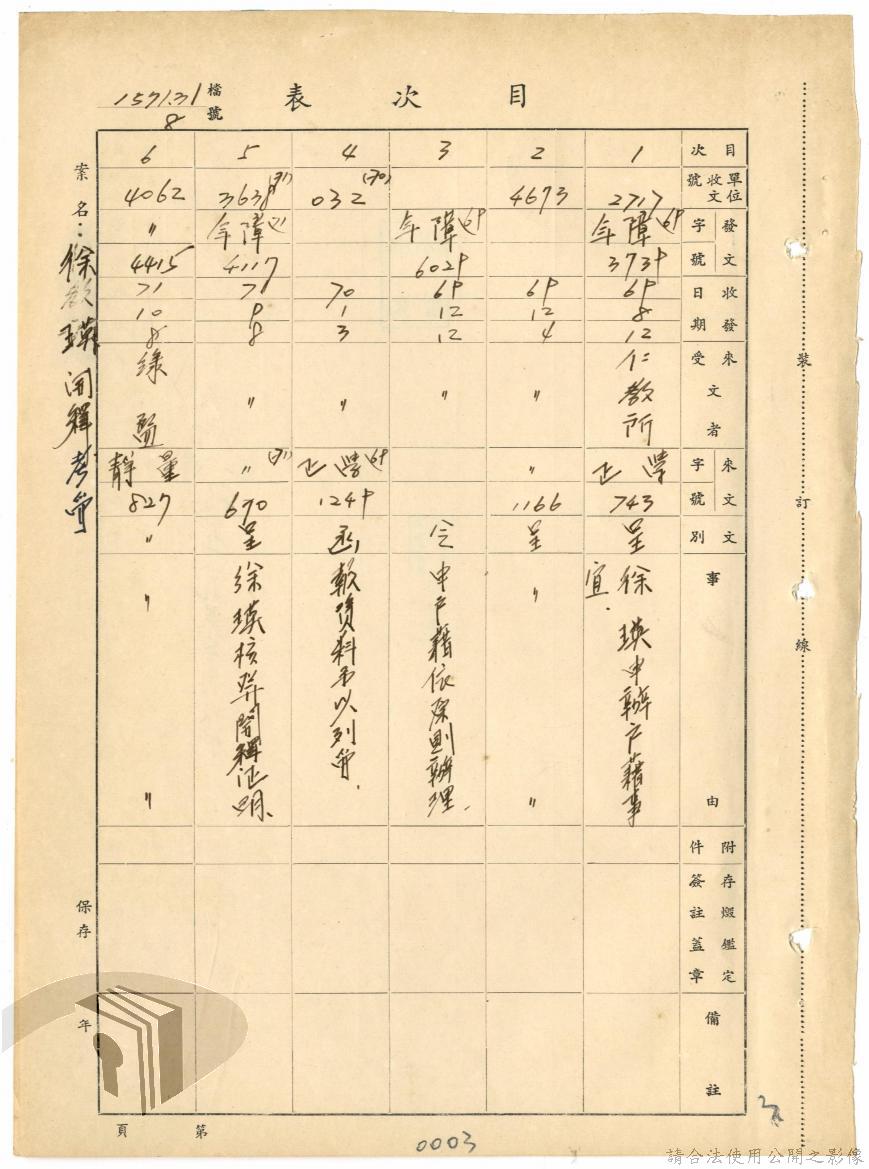 目次表
檔號
1571.31
8
案名：徐瑛開釋考管
目次
單位收文號
發文字號
收發日期
來文者
受文者
來文字號
文別
事由
附件
存燬鑑定
簽註蓋章
備註
1
2717
障 69
3739
69
8
12
仁教所
正學
743
呈
徐瑛申辦戶藉事
宜.
2
4673
69
12
4
〃
〃
1166
呈
〃
〃
3
障 69
6029
69
12
12
〃
令
申戶藉依原則辦理.
4
032 (70)
70
1
3
〃
正學 69
1249
函
資料予以列管.
5
3638 (71)
障 71
4117
71
9
8
〃
〃 (71)
690
呈
徐瑛核發開釋証明.
6
4062
〃
4415
71
10
8
綠監
靜
827
〃
〃
〃
保存
年
第
頁
裝
訂
線
0003
3
請合法使用公開之影像